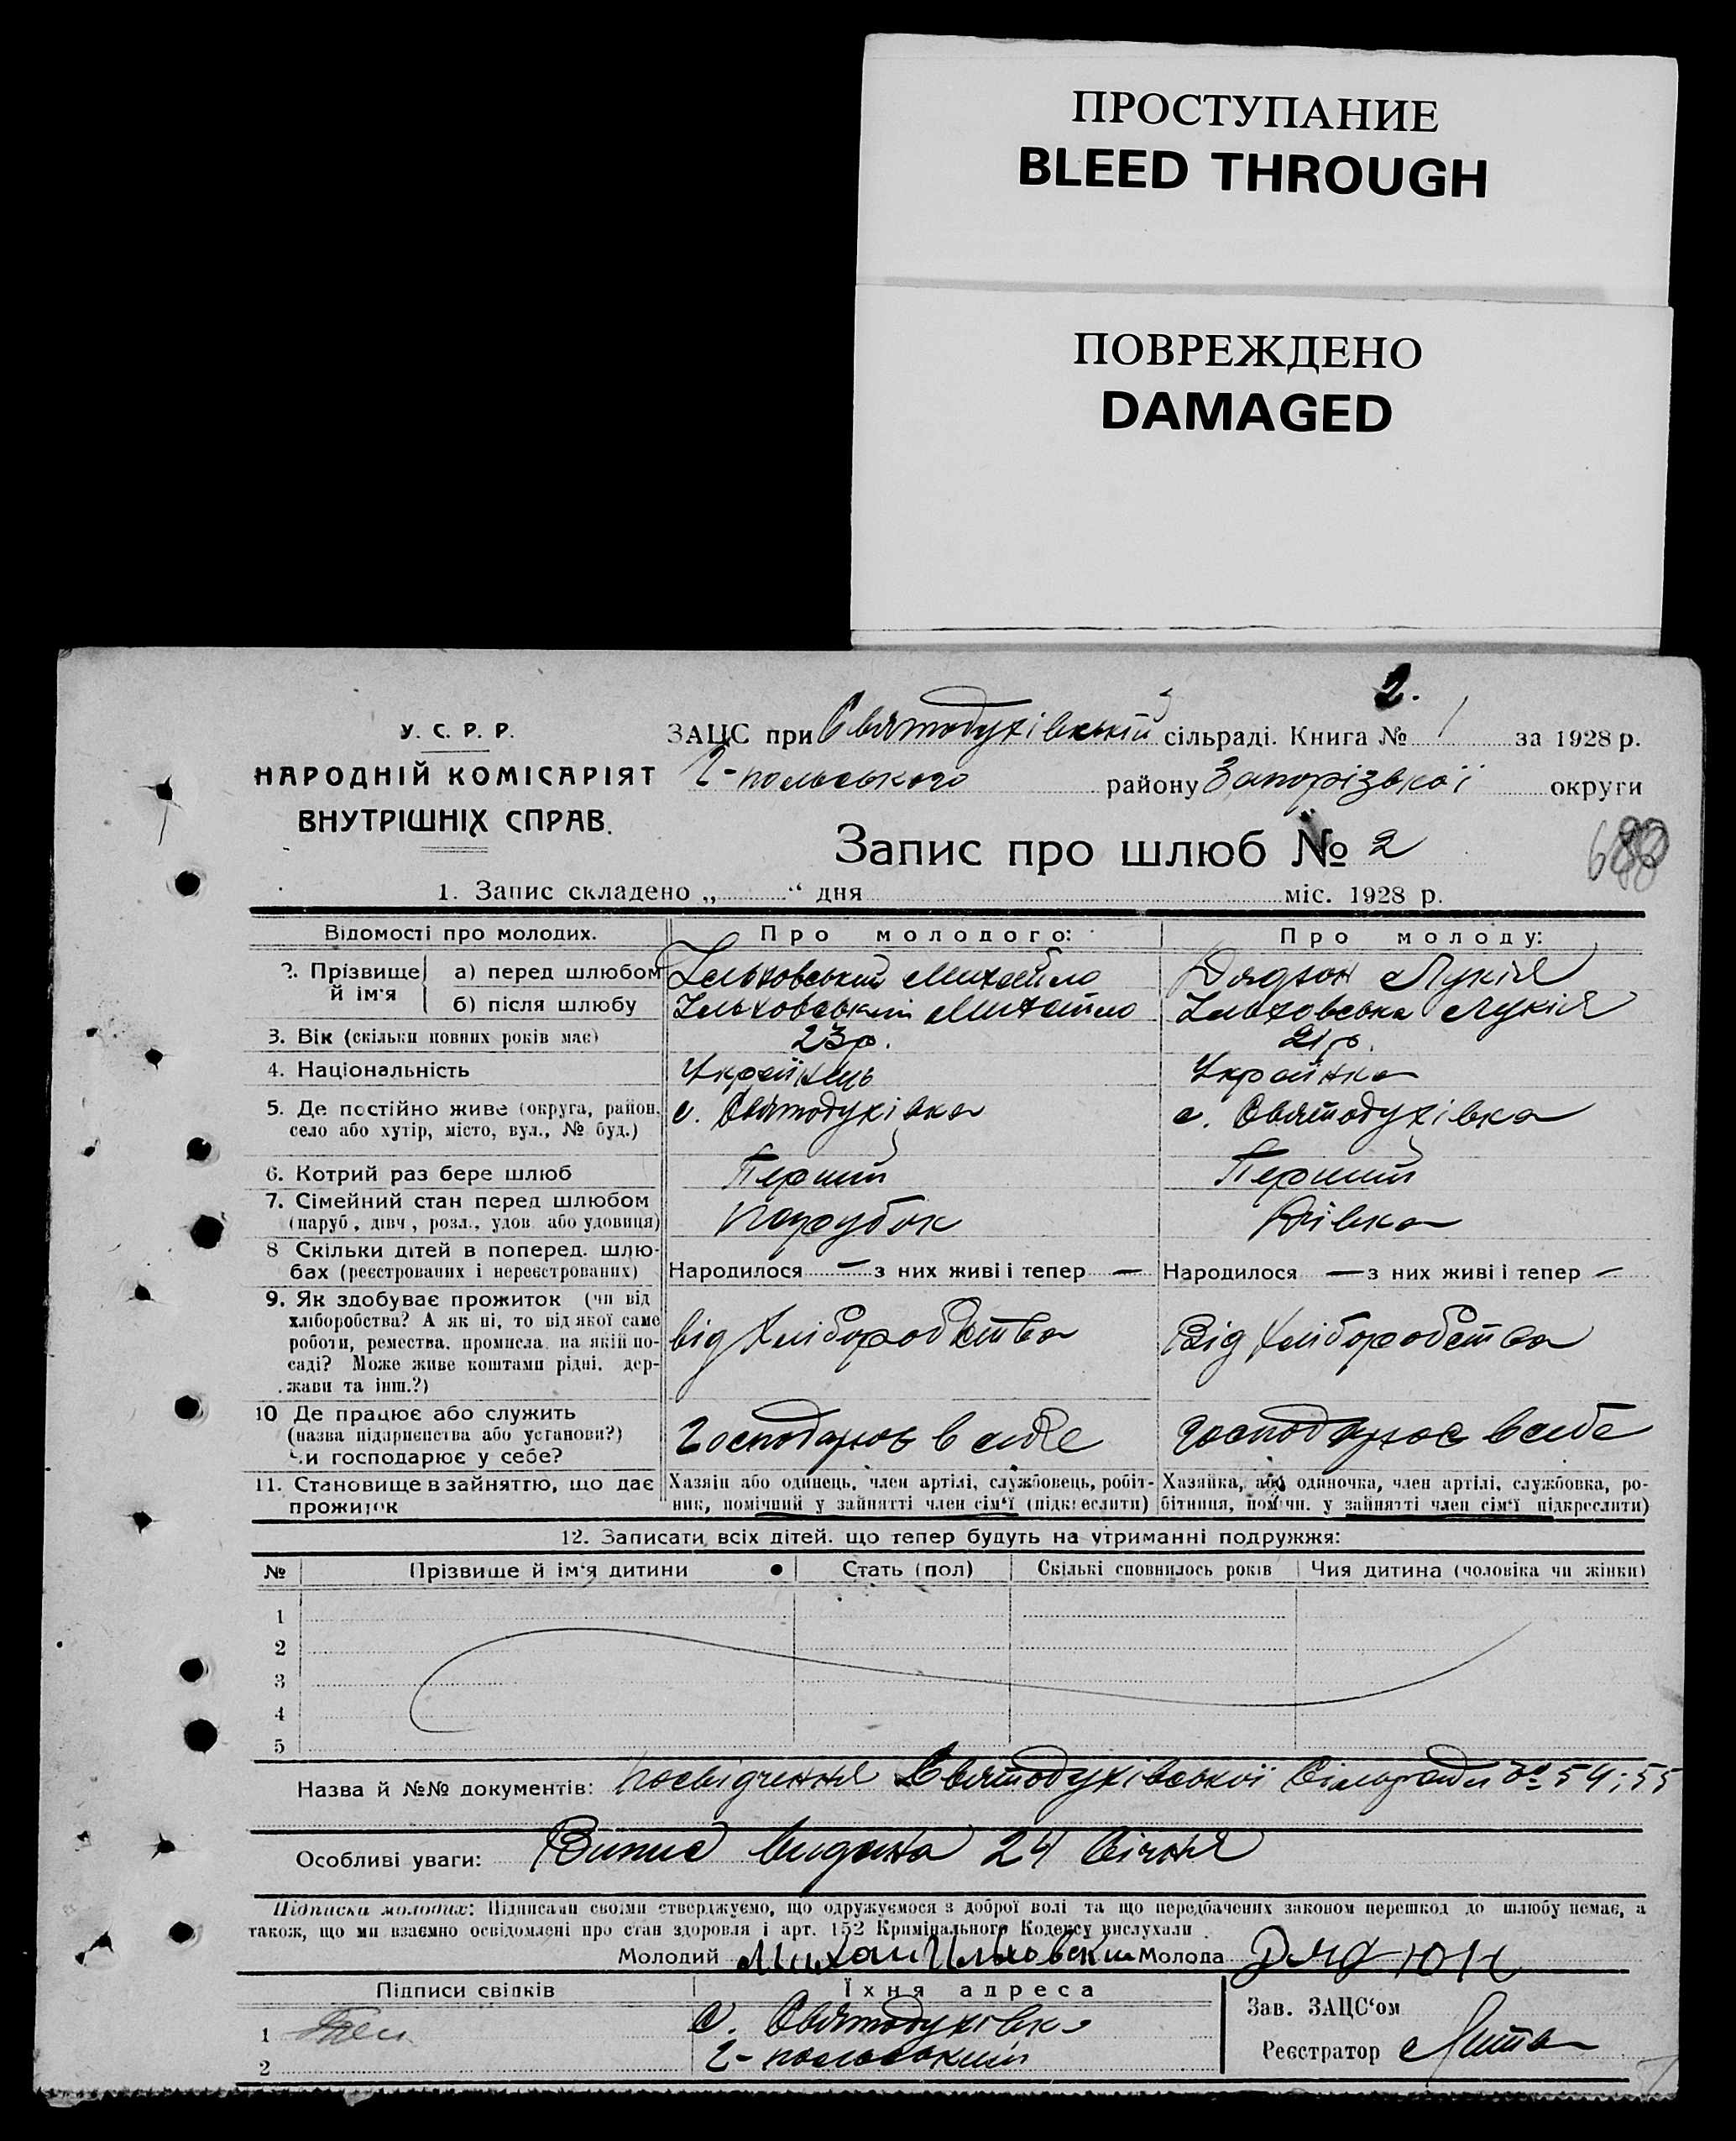 ПРОСТУПАНИЕ
BLEED THROUGH
ПОВРЕЖДЕНО
DAMAGED
2.
У. С. Р. Р.
НАРОДНІЙ КОМІСАРІЯТ
ВНУТРІШНІХ СПРАВ.
ЗАЦС при Святодухівській сільраді. Книга № 1 за 1928 р.
Г-польського району Запорізької округи
Запис про шлюб № 2
1. Запис складено „ “ дня міс. 1928 р.
Відомості про молодих. Про молодого: Про молоду:
2. Прізвище й ім'я а) перед шлюбом Ільховський Михайло Дядюн Лукія
б) після шлюбу Ільховський Михайло Ільховська Лукія
3. Вік (скільки повних років має) 23 р. 21 р.
4. Національність Українець Українка
5. Де постійно живе (округа, район, с. Святодухівка с. Святодухівка
село або хутір, місто, вул., № буд.)
6. Котрий раз бере шлюб Перший Перший
7. Сімейний стан перед шлюбом Парубок Дівка
(паруб., дівч., розл., удов. або удовиця)
8 Скільки дітей в поперед. шлю-
бах (реєстрованих і нереєстрованих) Народилося — з них живі і тепер — Народилося — з них живі і тепер —
9. Як здобуває прожиток (чи від
хліборобства? А як ні, то від якої саме
роботи, ремества, промисла, на якій по- від Хліборобства Від Хліборобства
саді? Може живе коштами рідні, дер-
жави та інш.?)
10 Де працює або служить
(назва підприємства або установи?) Господарює в себе Господарює в себе
Чи господарює у себе?
11. Становище в зайняттю, що дає Хазяїн або одинець, член артілі, службовець, робіт- Хазяйка, або одиночка, член артілі, службовка, ро-
прожиток ник, помічний у зайнятті член сім'ї (підкреслити) бітниця, помічн. у зайнятті член сім'ї підкреслити)
12. Записати всіх дітей, що тепер будуть на утриманні подружжя:
№ Прізвище й ім'я дитини Стать (пол) Скількі сповнилось років Чия дитина (чоловіка чи жінки)
1
2
3
4
5
Назва й №№ документів: Посвідчення Святодухівської Сільради № 54; 55
Особливі уваги: Випис видана 24 Січня
Підписки молодих: Підписами своїми стверджуємо, що одружуємося з доброї волі та що передбачених законом перешкод до шлюбу немає, а
також, що ми взаємно освідомлені про стан здоровля і арт. 152 Кримінального Кодексу вислухали
Молодий Михаил Ильховский Молода Дядюн
Підписи свідків Їхня адреса
1 с. Святодухівка Зав. ЗАЦС'ом
2 Г-польський Реєстратор